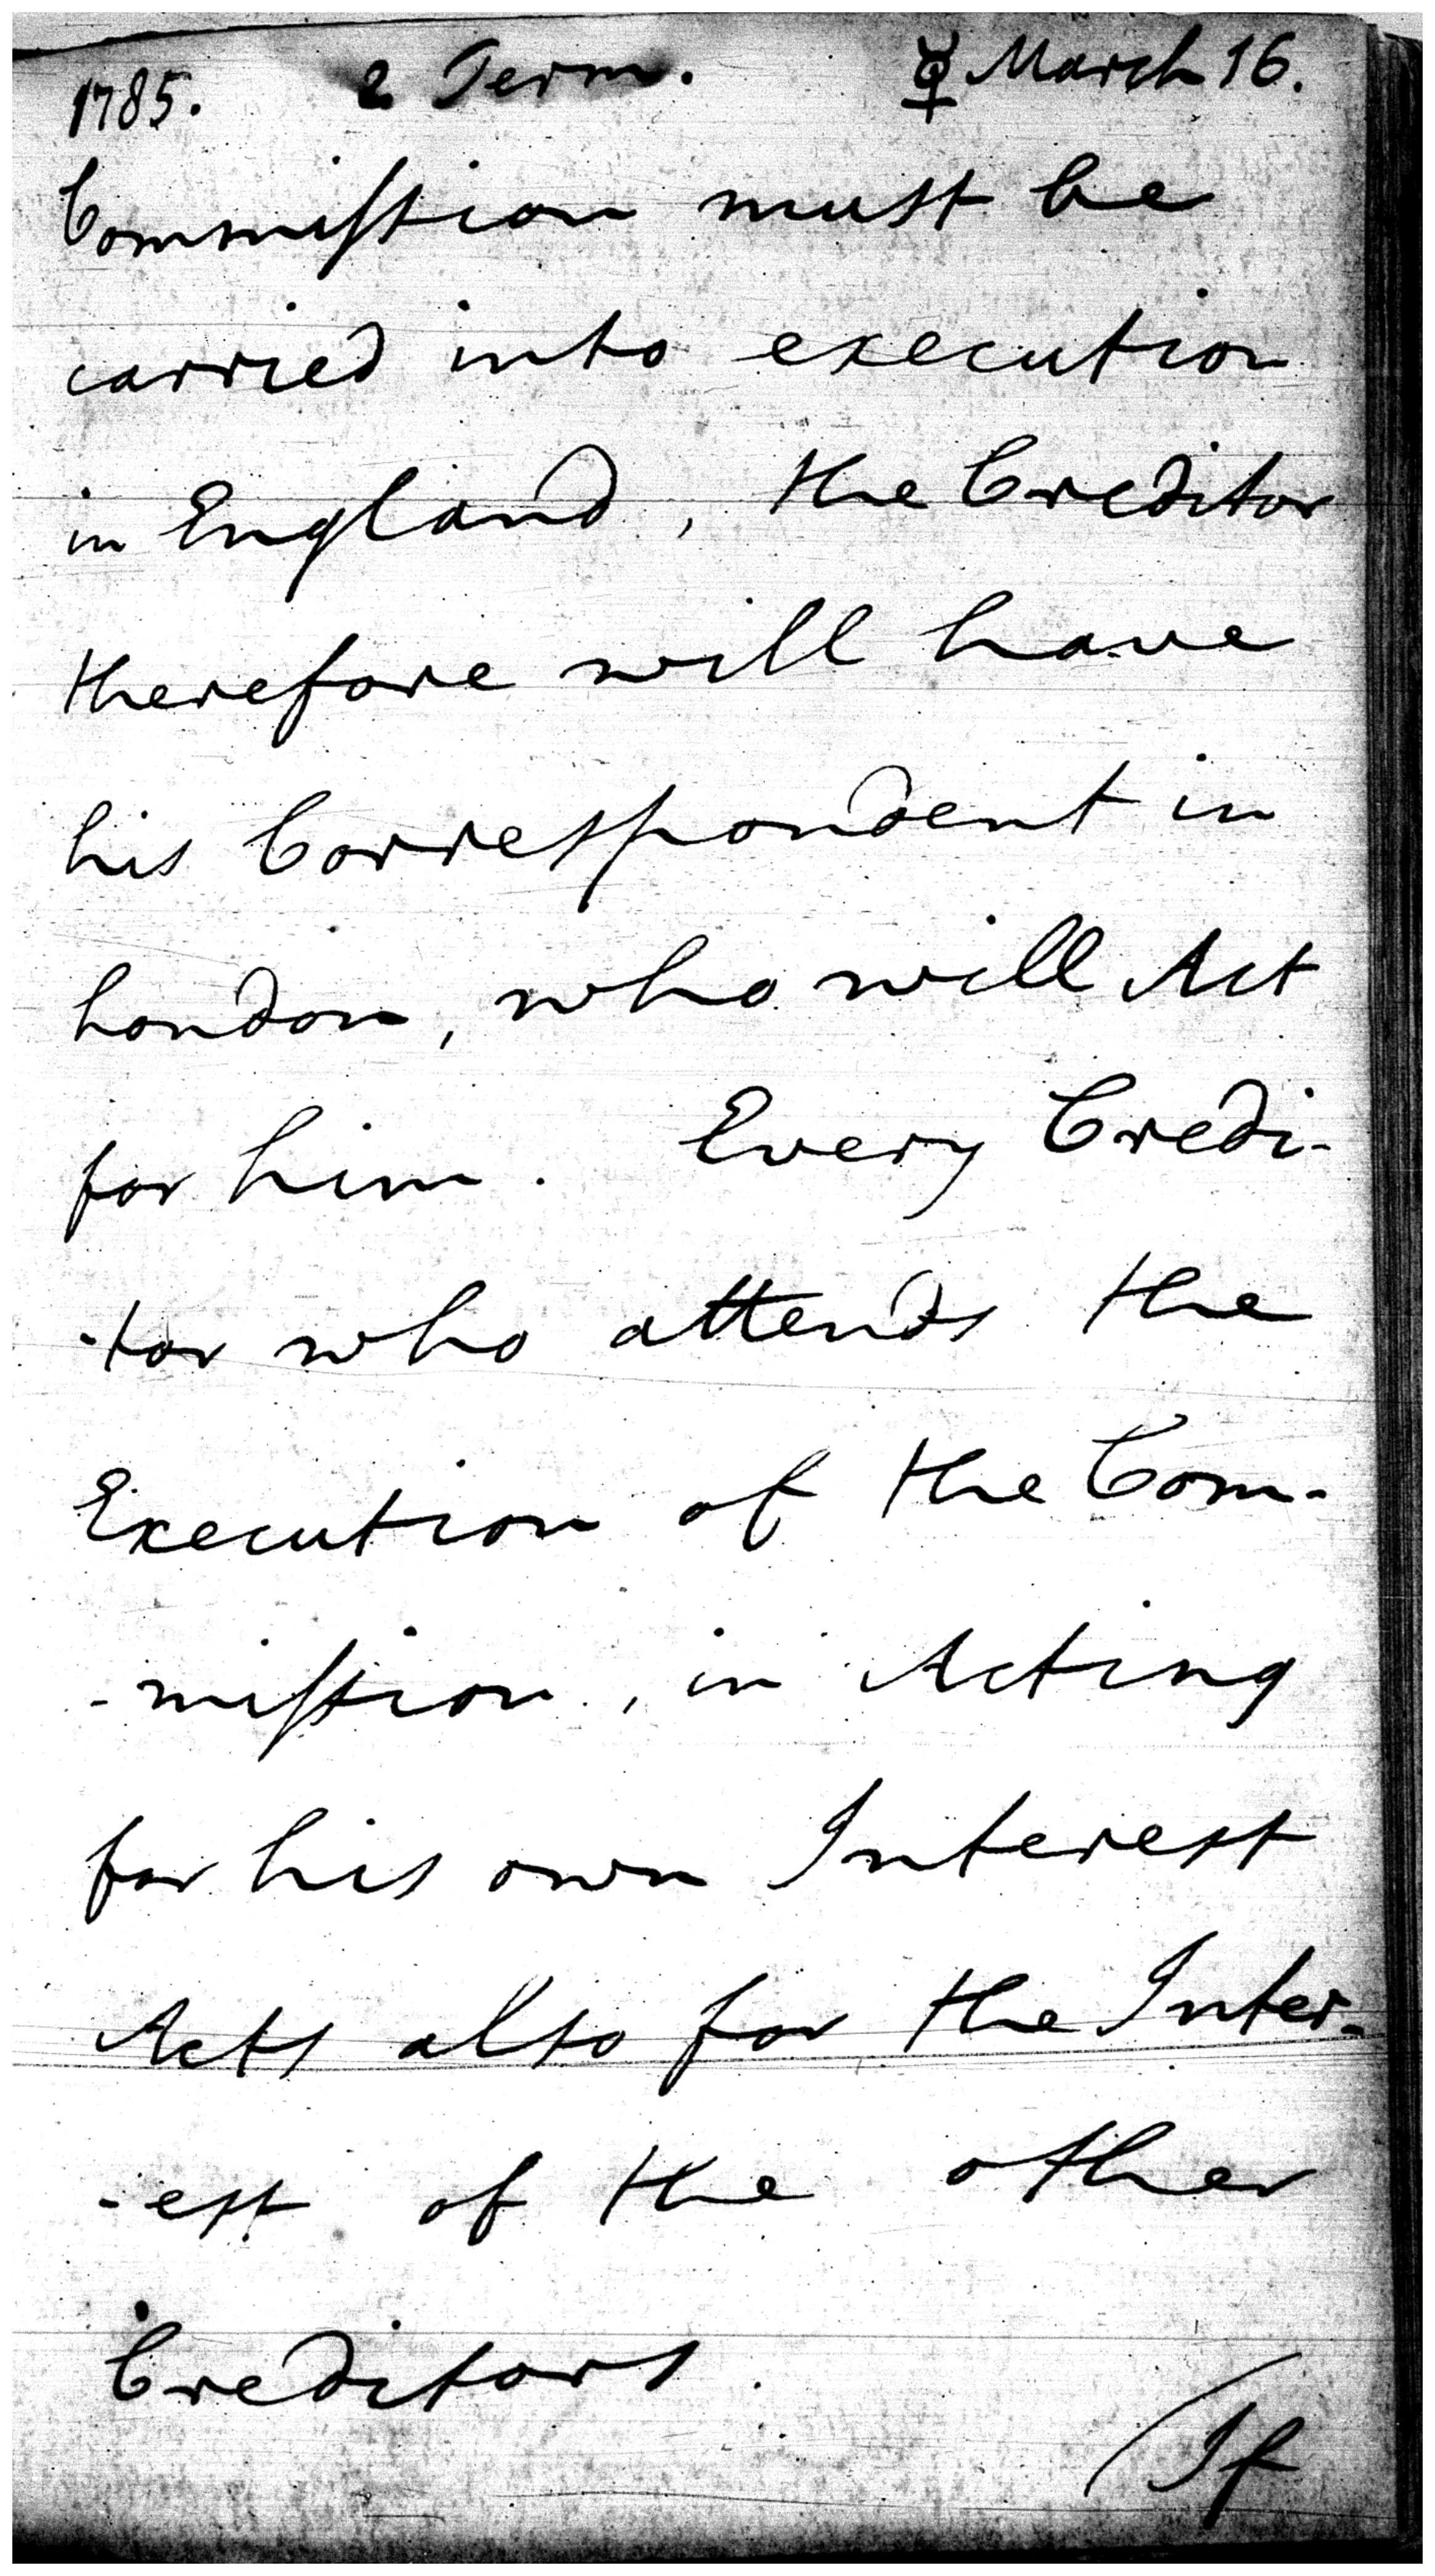 1785. 2 Term. ☿ March 16.
Commiſsion must be
carried into execution
in England, the Creditor
therefore will have
his Correspondent in
London, who will Act
for him. Every Credi-
-tor who attends the
Execution of the Com-
-miſsion, in Acting
for his own Interest
Acts also for the Inter-
-est of the other
Creditors.
(If